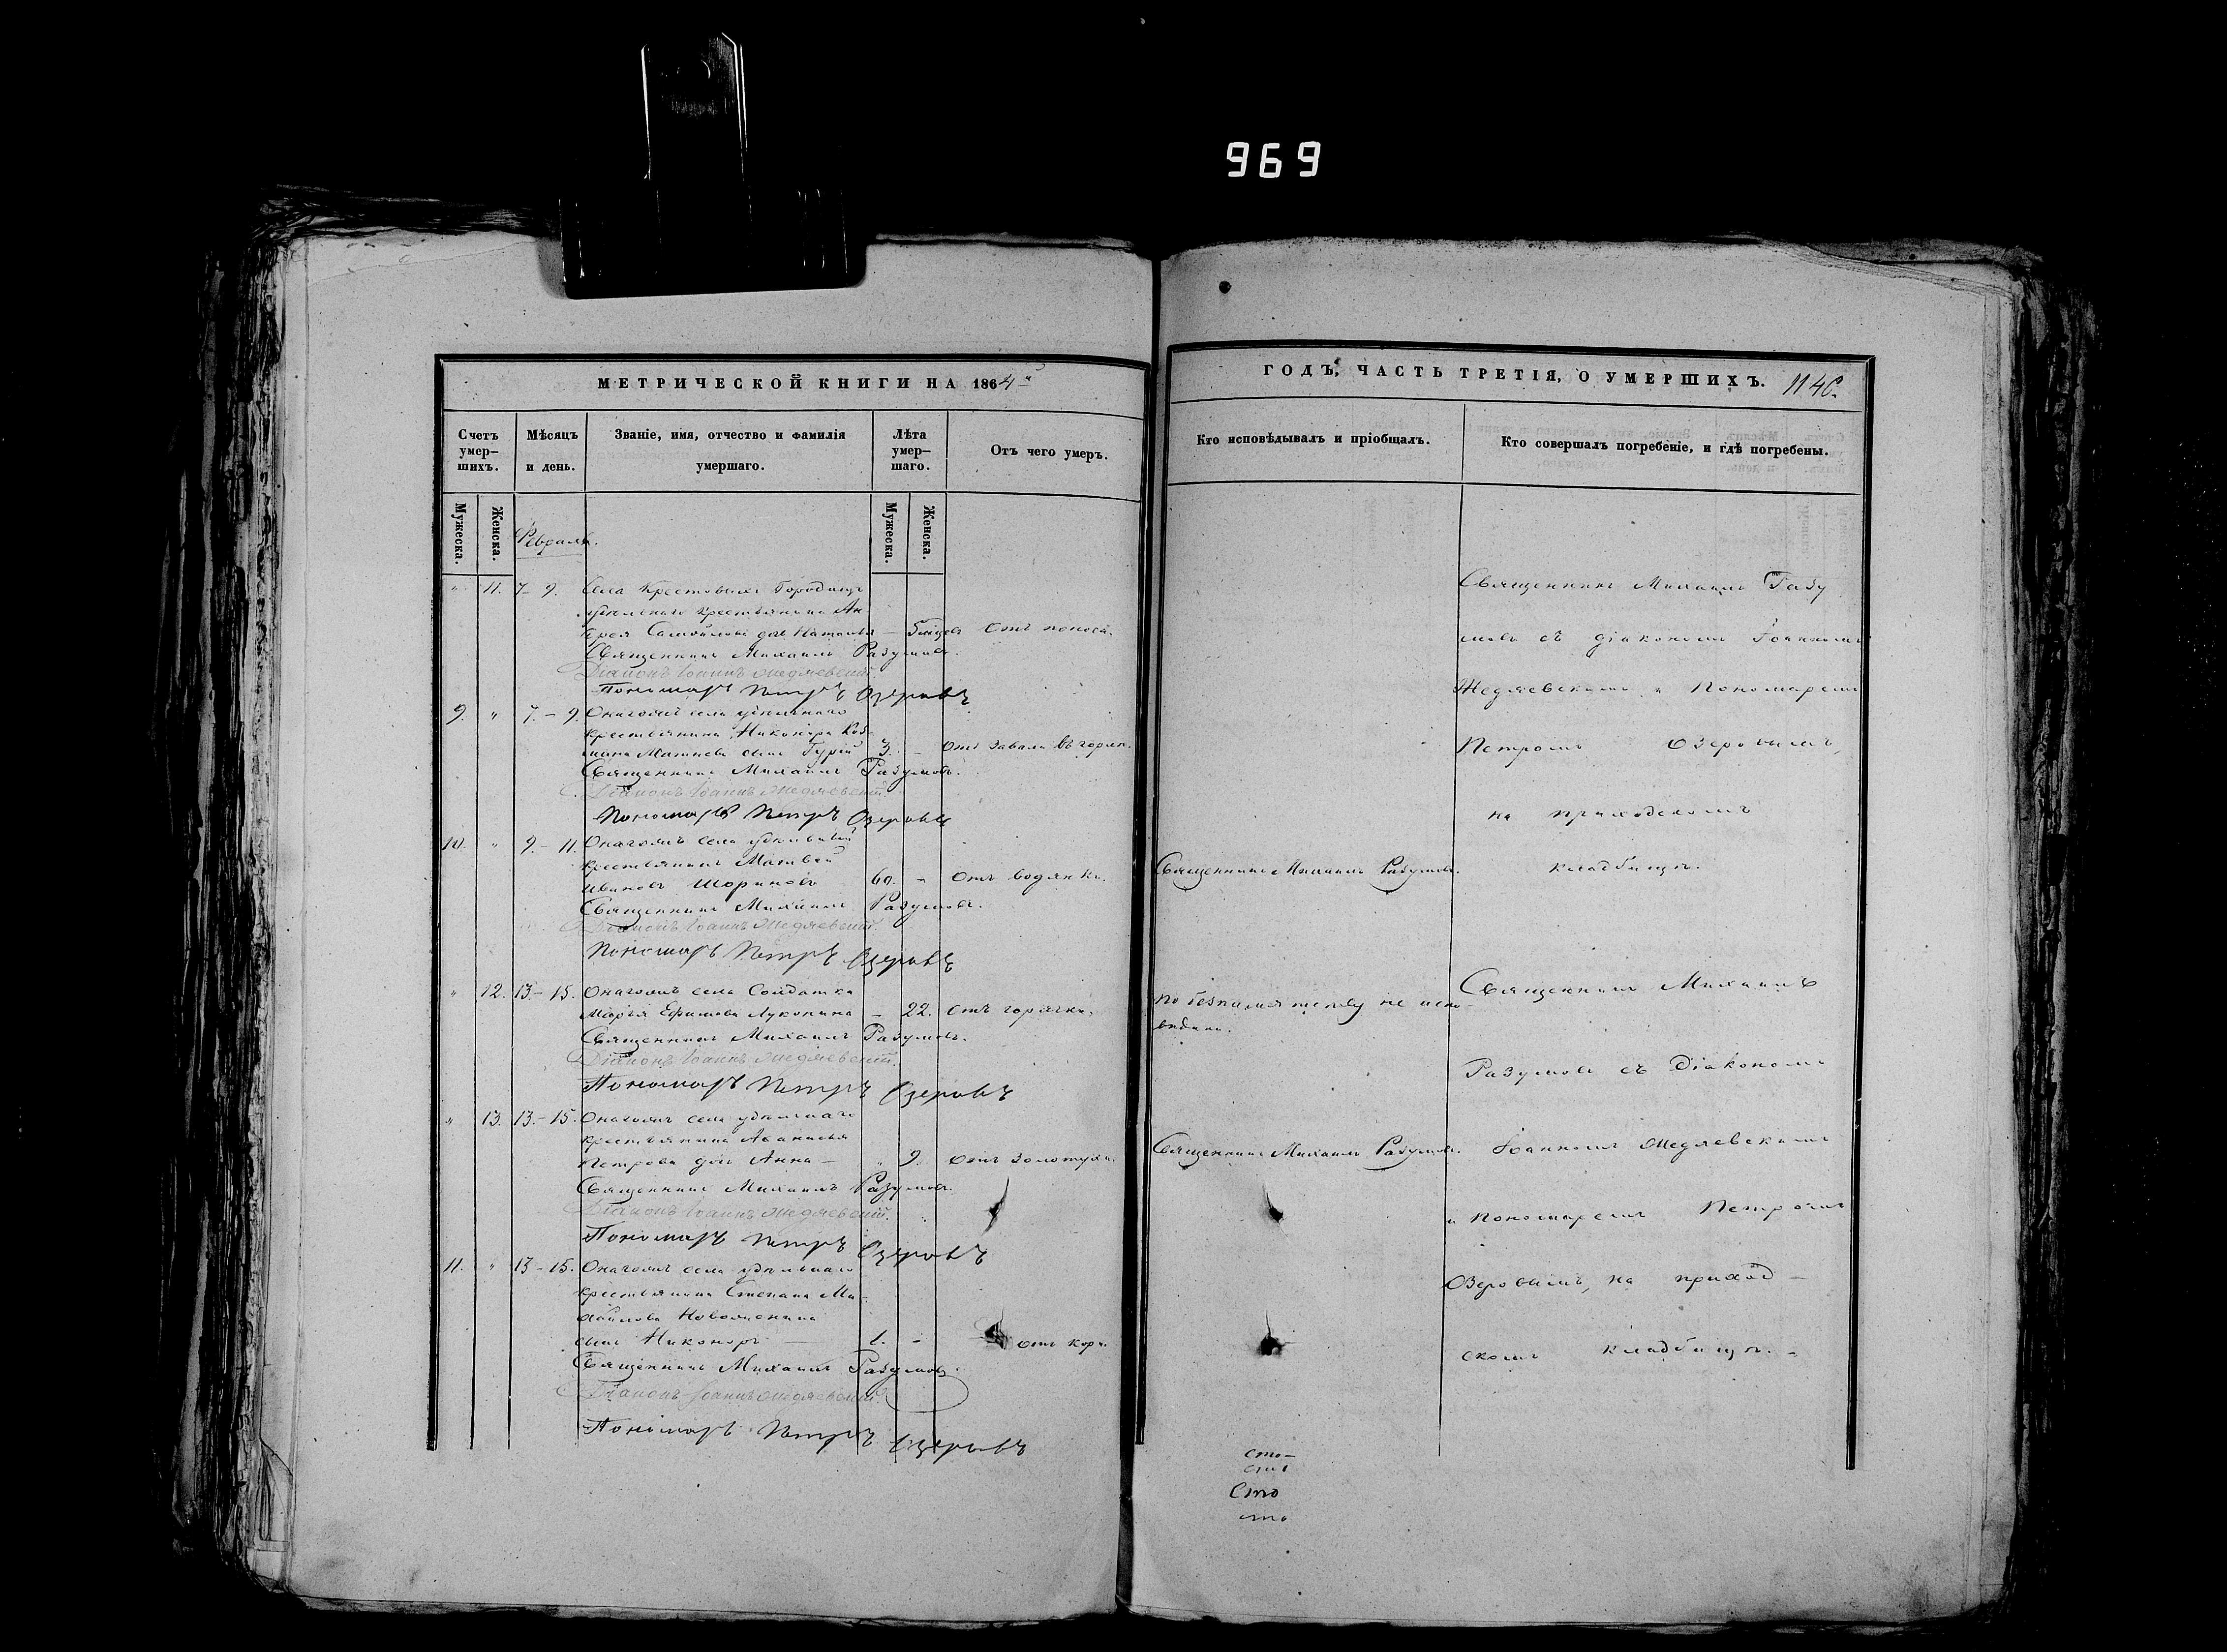 969
МЕТРИЧЕСКОЙ КНИГИ НА 1864й
Счетъ умер-шихъ.
Мѣсяцъ и день.
Званіе, имя, отчество и фамилія умершаго.
Лѣта умер-шаго.
Отъ чего умеръ.
Мужеска.
Женска.
Февраль.
Мужеска.
Женска.
" 11. 7-9. Села Крестовыхъ Городищъ
удѣльнаго крестьянина Ан
дрея Самойлова дочь Наталья - 5 мѣсяц. Отъ поноса.
Священникъ Михаилъ Разумовъ.
Діаконъ Іоаннъ Медяевскій.
Пономарь Петръ Озеровъ
9. " 7.-9. Онагожъ села удѣльнаго
крестьянина Никонора
Матвѣева сынъ Гурій 3. - отъ завала въ горлѣ.
Священникъ Михаилъ Разумовъ.
Діаконъ Іоаннъ Медяевскій.
Пономарь Петръ Озеровъ
10. " 9.-11. Онагожъ села удѣльный
крестьянинъ Матвей
Ивановъ Шориновъ 60. - Отъ водянки.
Священникъ Михаилъ Разумовъ.
Діаконъ Іоаннъ Медяевскій.
Пономарь Петръ Озеровъ
" 12. 13.-15. Онагожъ села Солдатка
Марья Ефимова Луконина - 22. Отъ горячки.
Священникъ Михаилъ Разумовъ.
Діаконъ Іоаннъ Медяевскій.
Пономарь Петръ Озеровъ
" 13. 13.-15. Онагожъ села удѣльнаго
крестьянина Аѳанасья
Петрова дочь Анна - " 9. отъ золотухи.
Священникъ Михаилъ Разумовъ.
Діаконъ Іоаннъ Медяевскій.
Пономарь Петръ Озеровъ
11. " 13-15. Онагожъ села удѣльнаго
крестьянина Степана Ми-
хайлова
сынъ Никоноръ - 1. - отъ кори.
Священникъ Михаилъ Разумовъ
Діаконъ Іоаннъ Медяевскій.
Пономарь Петръ Озеровъ
ГОДЪ, ЧАСТЬ ТРЕТІЯ, О УМЕРШИХЪ.
Кто исповѣдывалъ и пріобщалъ.
Кто совершалъ погребеніе, и гдѣ погребены.
Священникъ Михаилъ Разу
мовъ съ діакономъ Іоанномъ
Медяевскимъ и Пономаремъ
Петромъ Озеровымъ,
на приходскомъ
кладбищѣ.
Священникъ Михаилъ Разумовъ.
по безпамятству не испо-
ведана.
Священникъ Михаилъ
Разумовъ съ Діакономъ
Священникъ Михаилъ Разумовъ.
Іоанномъ Медяевскимъ
и пономаремъ Петромъ
Озеровымъ, на приход-
скомъ кладбищѣ.-
сто-
Сто